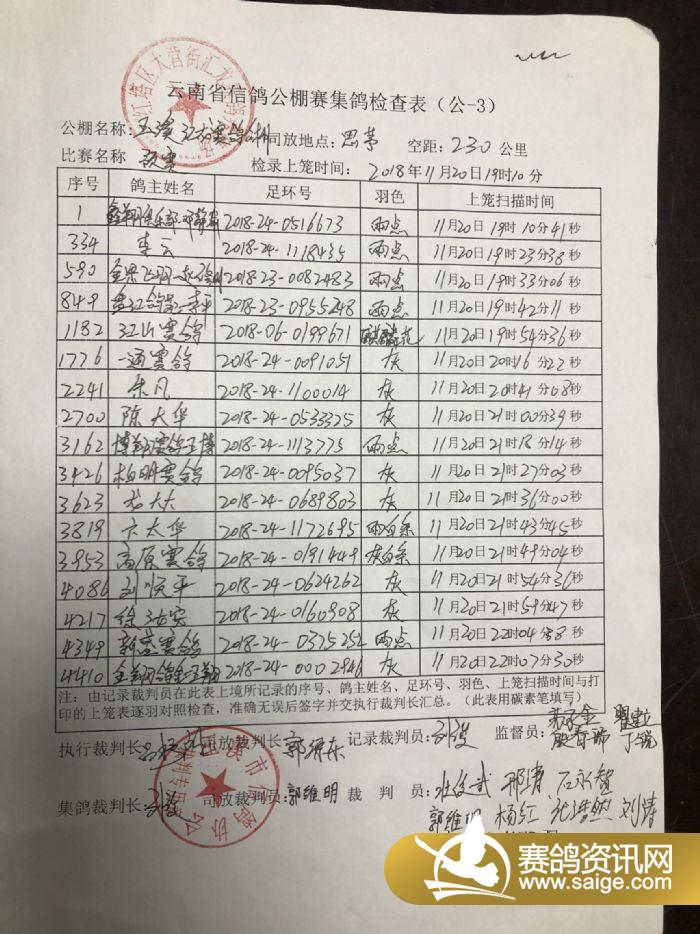 云南省信鸽公棚赛集鸽检查表（公-3）
公棚名称: 玉溪汇龙赛鸽公棚 司放地点: 思茅 空距: 230 公里
比赛名称 预赛 检录上笼时间: 2018年11月20日19时10分
序号 鸽主姓名 足环号 羽色 上笼扫描时间
1 2018-24-0516673 雨点 11月20日19时10分41秒
334 李云 2018-24-1118435 雨点 11月20日19时23分38秒
590 2018-23-0082483 雨点 11月20日19时33分06秒
849 2018-23-0955248 雨点 11月20日19时42分11秒
1182 江山赛鸽 2018-06-0199671 麒麟花 11月20日19时54分36秒
1776 一通赛鸽 2018-24-0091051 灰 11月20日20时16分22秒
2241 朱凡 2018-24-1100014 灰 11月20日20时41分08秒
2700 陈大华 2018-24-0533325 灰 11月20日21时00分39秒
3162 博翔赛鸽王博 2018-24-1113775 雨点 11月20日21时18分14秒
3426 柏明赛鸽 2018-24-0095037 灰 11月20日21时27分03秒
3623 2018-24-0689803 灰 11月20日21时36分00秒
3819 卞太华 2018-24-1172695 雨白条 11月20日21时43分45秒
3953 高原赛鸽 2018-24-0191449 灰白条 11月20日21时49分04秒
4086 刘顺平 2018-24-0624262 灰 11月20日21时54分36秒
4217 2018-24-0160908 灰 11月20日21时59分47秒
4349 新盛赛鸽 2018-24-0375252 雨点 11月20日22时04分38秒
4410 2018-24-0002946 灰 11月20日22时07分30秒
注: 由记录裁判员在此表上境所记录的序号、鸽主姓名、足环号、羽色、上笼扫描时间与打
印的上笼表逐羽对照检查, 准确无误后签字并交执行裁判长汇总。（此表用碳素笔填写）
执行裁判长: 司放裁判长: 郭源东 记录裁判员: 刘俊 监督员: 丁锐
集鸽裁判长: 刘俊 司放裁判员: 郭维明 裁判员: 杜俊武 邢清 石永赞
郭维明 杨红 沈浩然 刘涛
赛鸽资讯网
www.saige.com